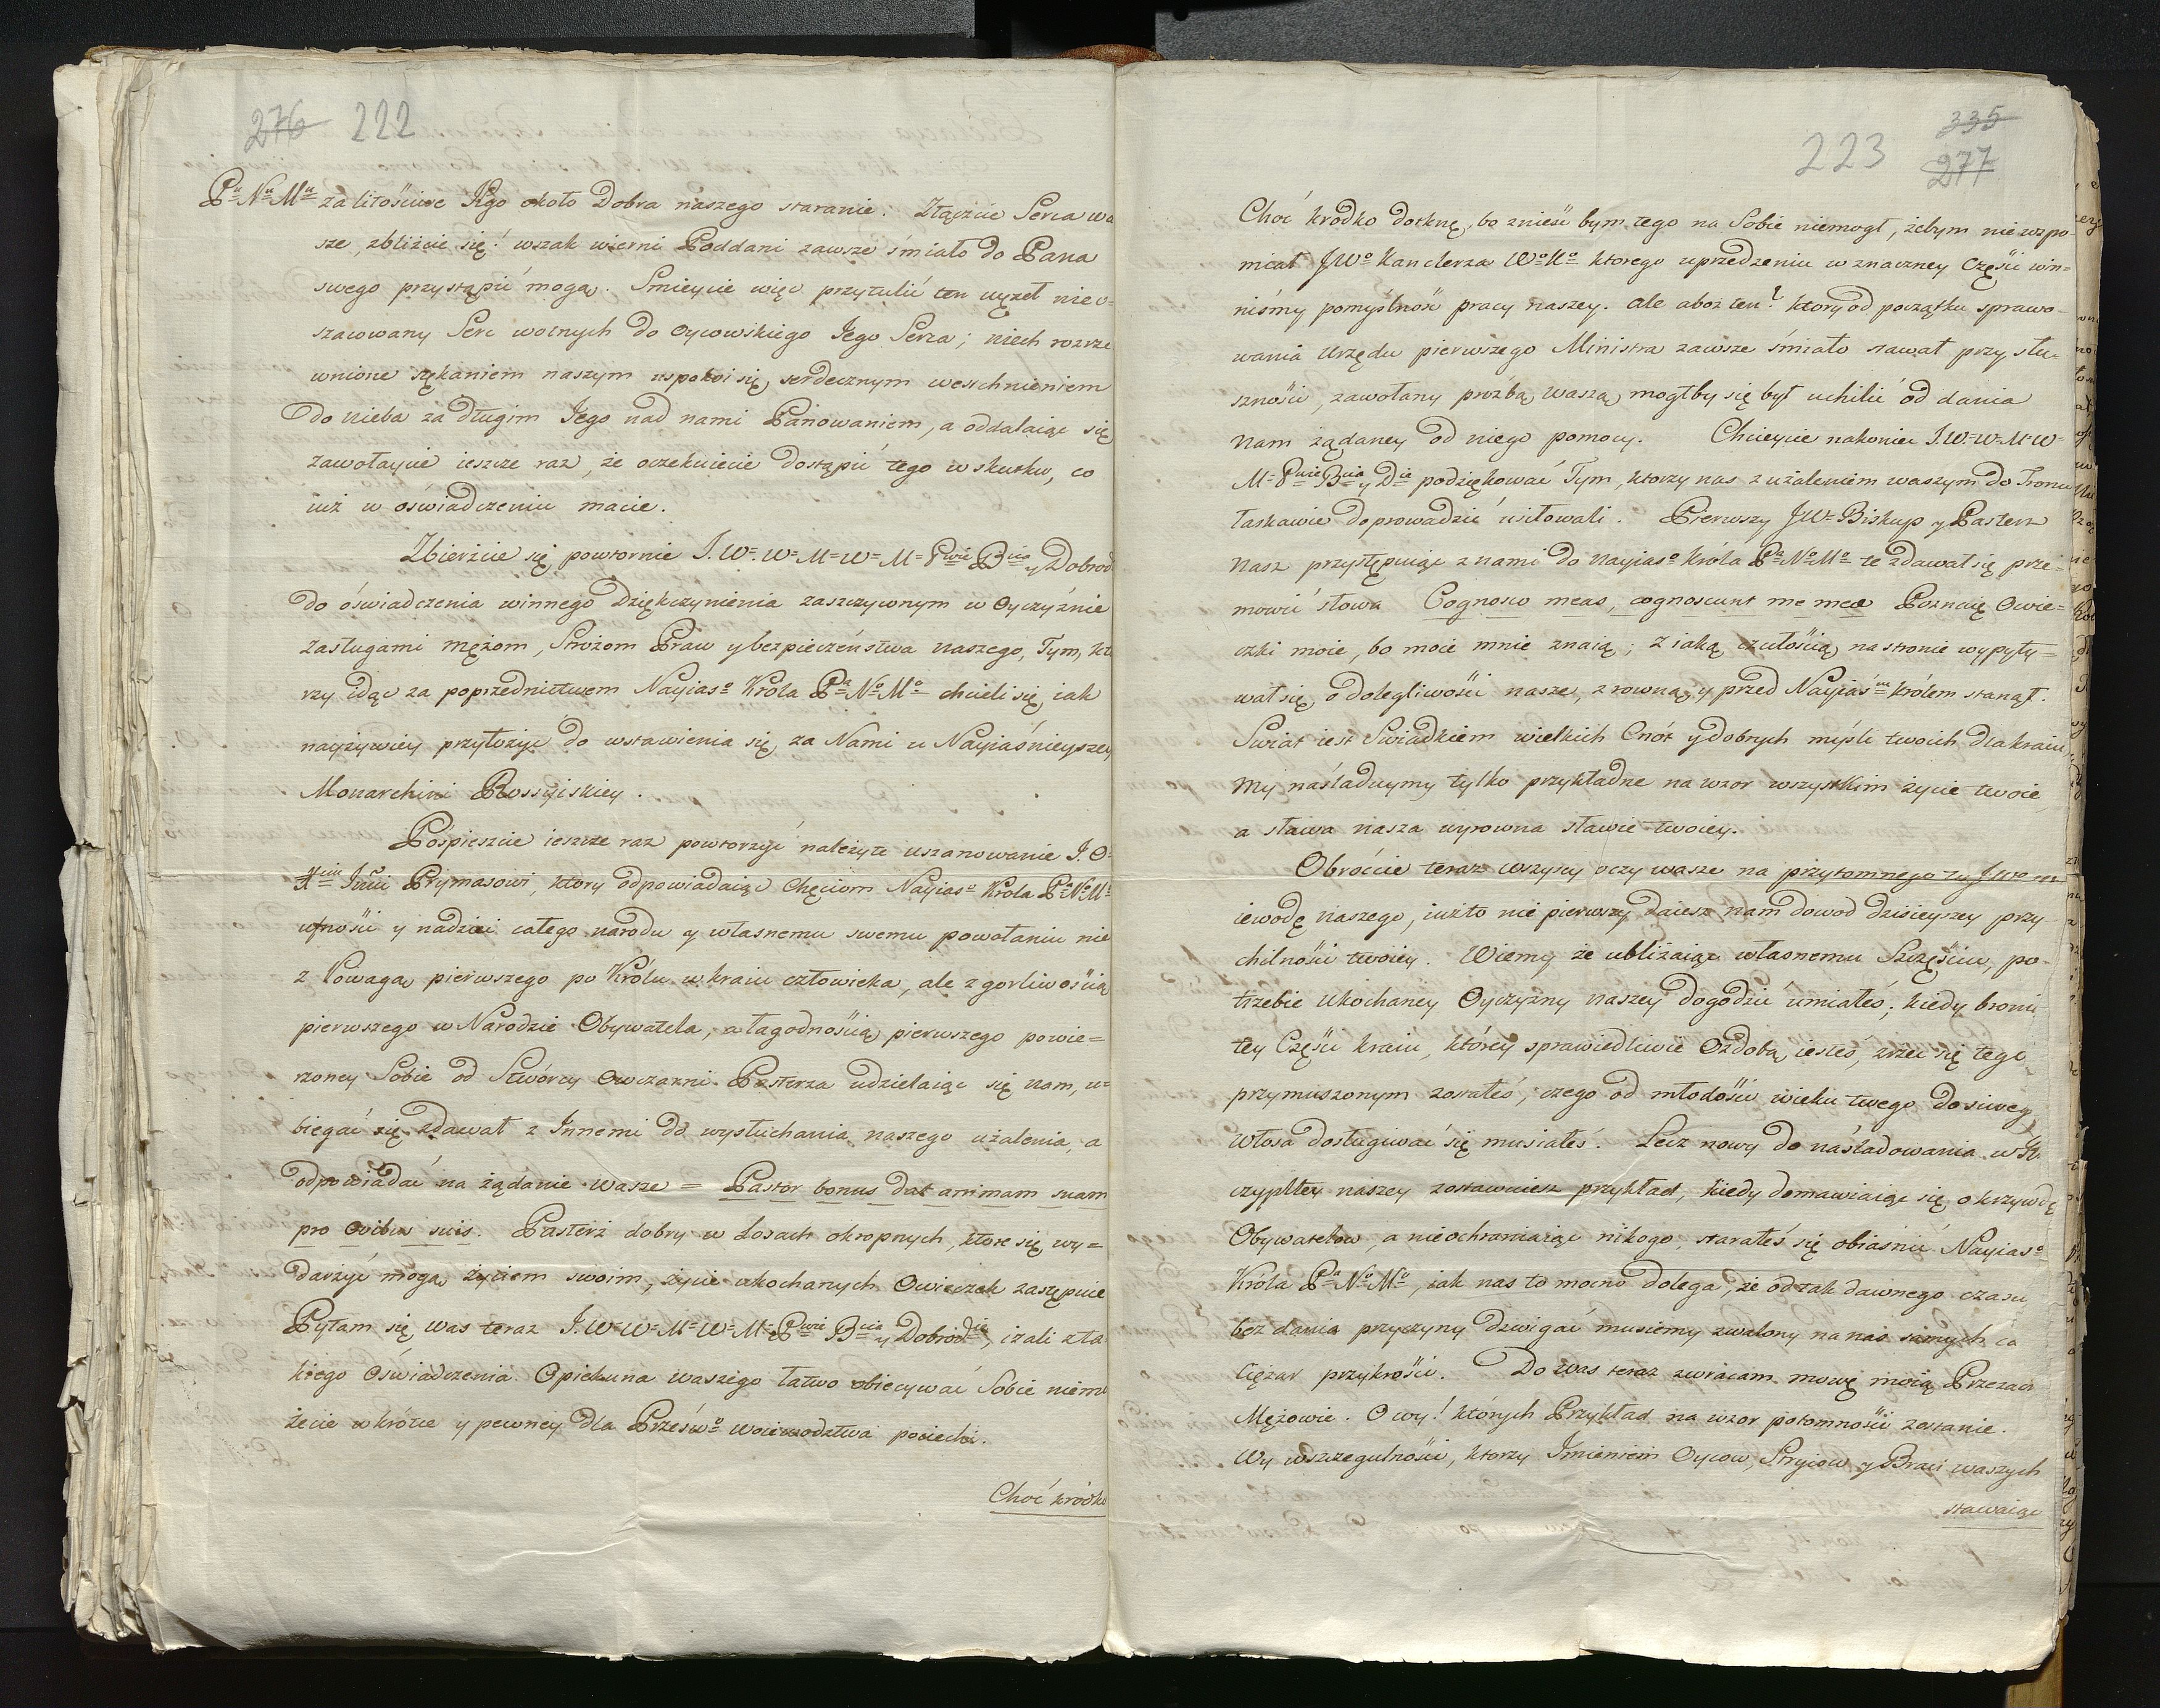 276 222
Pu Nu Mu za litościwe Jgo około Dobra naszego staranie. Złączcie Serca wa
sze, zbliżcie się! wszak wierni Poddani zawsze śmiało do Pana
swego przystąpić mogą. Smieycie więc przytulić ten węzeł nieo=
szacowany Serc wolnych do oycowskiego Jego Serca; niech rozrze
wnione stękaniem naszym uspokoi się, serdecznym westchnieniem
do nieba za długim Jego nad nami Panowaniem, a oddalaiąc się
zawołaycie ieszcze raz, że oczekuiecie dostąpić tego w skutku, co
iuż w oświadczeniu macie.
Zbierzcie się powtornie J. W= W= M= W= M= Pwie Bcia y Dobrod
do oświadczenia winnego Dziękczynienia zaszczywnym w Oyczyźnie
zasługami mężom, Strożom Praw y bezpieczeństwa naszego, Tym, kto
rzy idąc za poprzednictwem Nayiaso Krola Pa No Mo chcieli się iak
nayżywiey przyłożyć do wstawienia się za Nami u Nayiaśnieyszey
Monarchini Rossyiskiey.
Pośpieszcie ieszcze raz powtorzyć należyte uszanowanie J. O=
Xciu Jmci Prymasowi, ktory odpowiadaiąc Chęciom Nayiaso Krola Pa No Mo
ufności y nadziei całego narodu y własnemu swemu powołaniu nie
z Powagą pierwszego po Królu w kraiu człowieka, ale z gorliwością
pierwszego w Narodzie Obywatela, a łagodnością pierwszego powie=
rzoney Sobie od Stwórcy Owczarni Pasterza udzielaiąc się nam, u=
biegać się zdawał z Innemi do wysłuchania naszego użalenia, a
odpowiadać na żądanie wasze = Pastor bonus dat animam suam
pro ovibus suis. Pasterz dobry w Losach okropnych, ktore się wy=
darzyć mogą życiem swoim, życie ukochanych Owieczek zastępuie
Pytam się was teraz J. W= W= M= W= M= Pwie Bcia y Dobrodie, izali z ta
kiego Oświadczenia Opiekuna waszego łatwo obiecywać Sobie niemo
żecie wkrótce y pewney dla Prześwo Woiewodztwa pociechi.
Choć krodko
335
223 277
Choć krodko dotknę, bo znieść bym tego na Sobie niemogł, żebym nie wspo=
micał JWo Kanclerza Wo Ko ktorego uprzedzeniu w znaczney Części win=
niśmy pomyślność pracy naszey. ale aboż ten? ktory od początku sprawo=
wania Urzędu pierwszego Ministra zawsze śmiało stawał przy słu=
szności, zawołany prożbą waszą mogłby się był uchilić od dania
nam żądaney od niego pomocy. Chcieycie nakoniec J. W= W= M= W=
M= Pwie Bcia y Die podziękować Tym, ktorzy nas z użaleniem waszym do Tronu
łaskawie doprowadzić usiłowali. Pierwszy JW= Biskup y Pasterz
nasz przystępuiąc z nami do Nayiaso Króla Pa No Mo te zdawał się prze=
mowić słowa Cognosco meas, cognoscunt me meæ Poznaię Owie=
czki moie, bo moie mnie znaią; Z iaką czułością na stronie wypyty=
wał się o dolegliwości nasze, z rowną y przed Nayiaśm królem stanął.
Swiat iest Swiadkiem wielkich Cnót y dobrych myśli twoich dla kraiu
my naśladuymy tylko przykładne na wzor wszystkim życie twoie
a sława nasza wyrowna sławie twoiey.
Obróćcie teraz wszyscy oczy wasze na przytomnego tu JWo wo
iewodę naszego, iużto nie pierwszy daiesz nam dowod dzisieyszey przy=
chilności twoiey. Wiemy że ubliżaiąc własnemu Szczęściu, po=
trzebie ukochaney Oyczyzny naszey dogodzić umiałeś; kiedy broniąc
tey Części kraiu, którey sprawiedliwie Ozdobą iesteś, zrzec się tego
przymuszonym zostałeś, czego od młodości wieku twego do siwego
włosa dosługiwać się musiałeś. Lecz nowy do naśladowania w Rze
czypltey naszey zostawuiesz przykład, kiedy domawiaiąc się o krzywdę
Obywatelow, a nieochraniaiąc nikogo, starałeś się obiaśnić Nayiaso
Króla Pa No Mo, iak nas to mocno dolega, że od tak dawnego czasu
bez dania przyczyny dzwigać musiemy zwalony na nas samych ca
ciężar przykrości. Do was teraz zwracam mowę moią Przezacni
Mężowie. O wy! których Przykład na wzor potomności zostanie.
Wy wszczegulności, ktorzy Imieniem Oycow, Stryiow y Braci waszych
stawaiąc